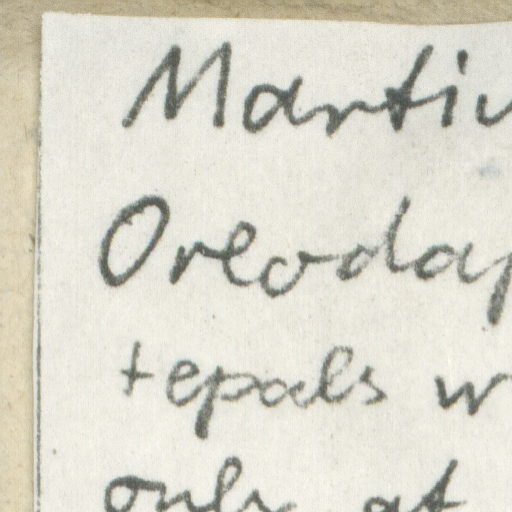 Martiu
Oreodap
tepals w
only at